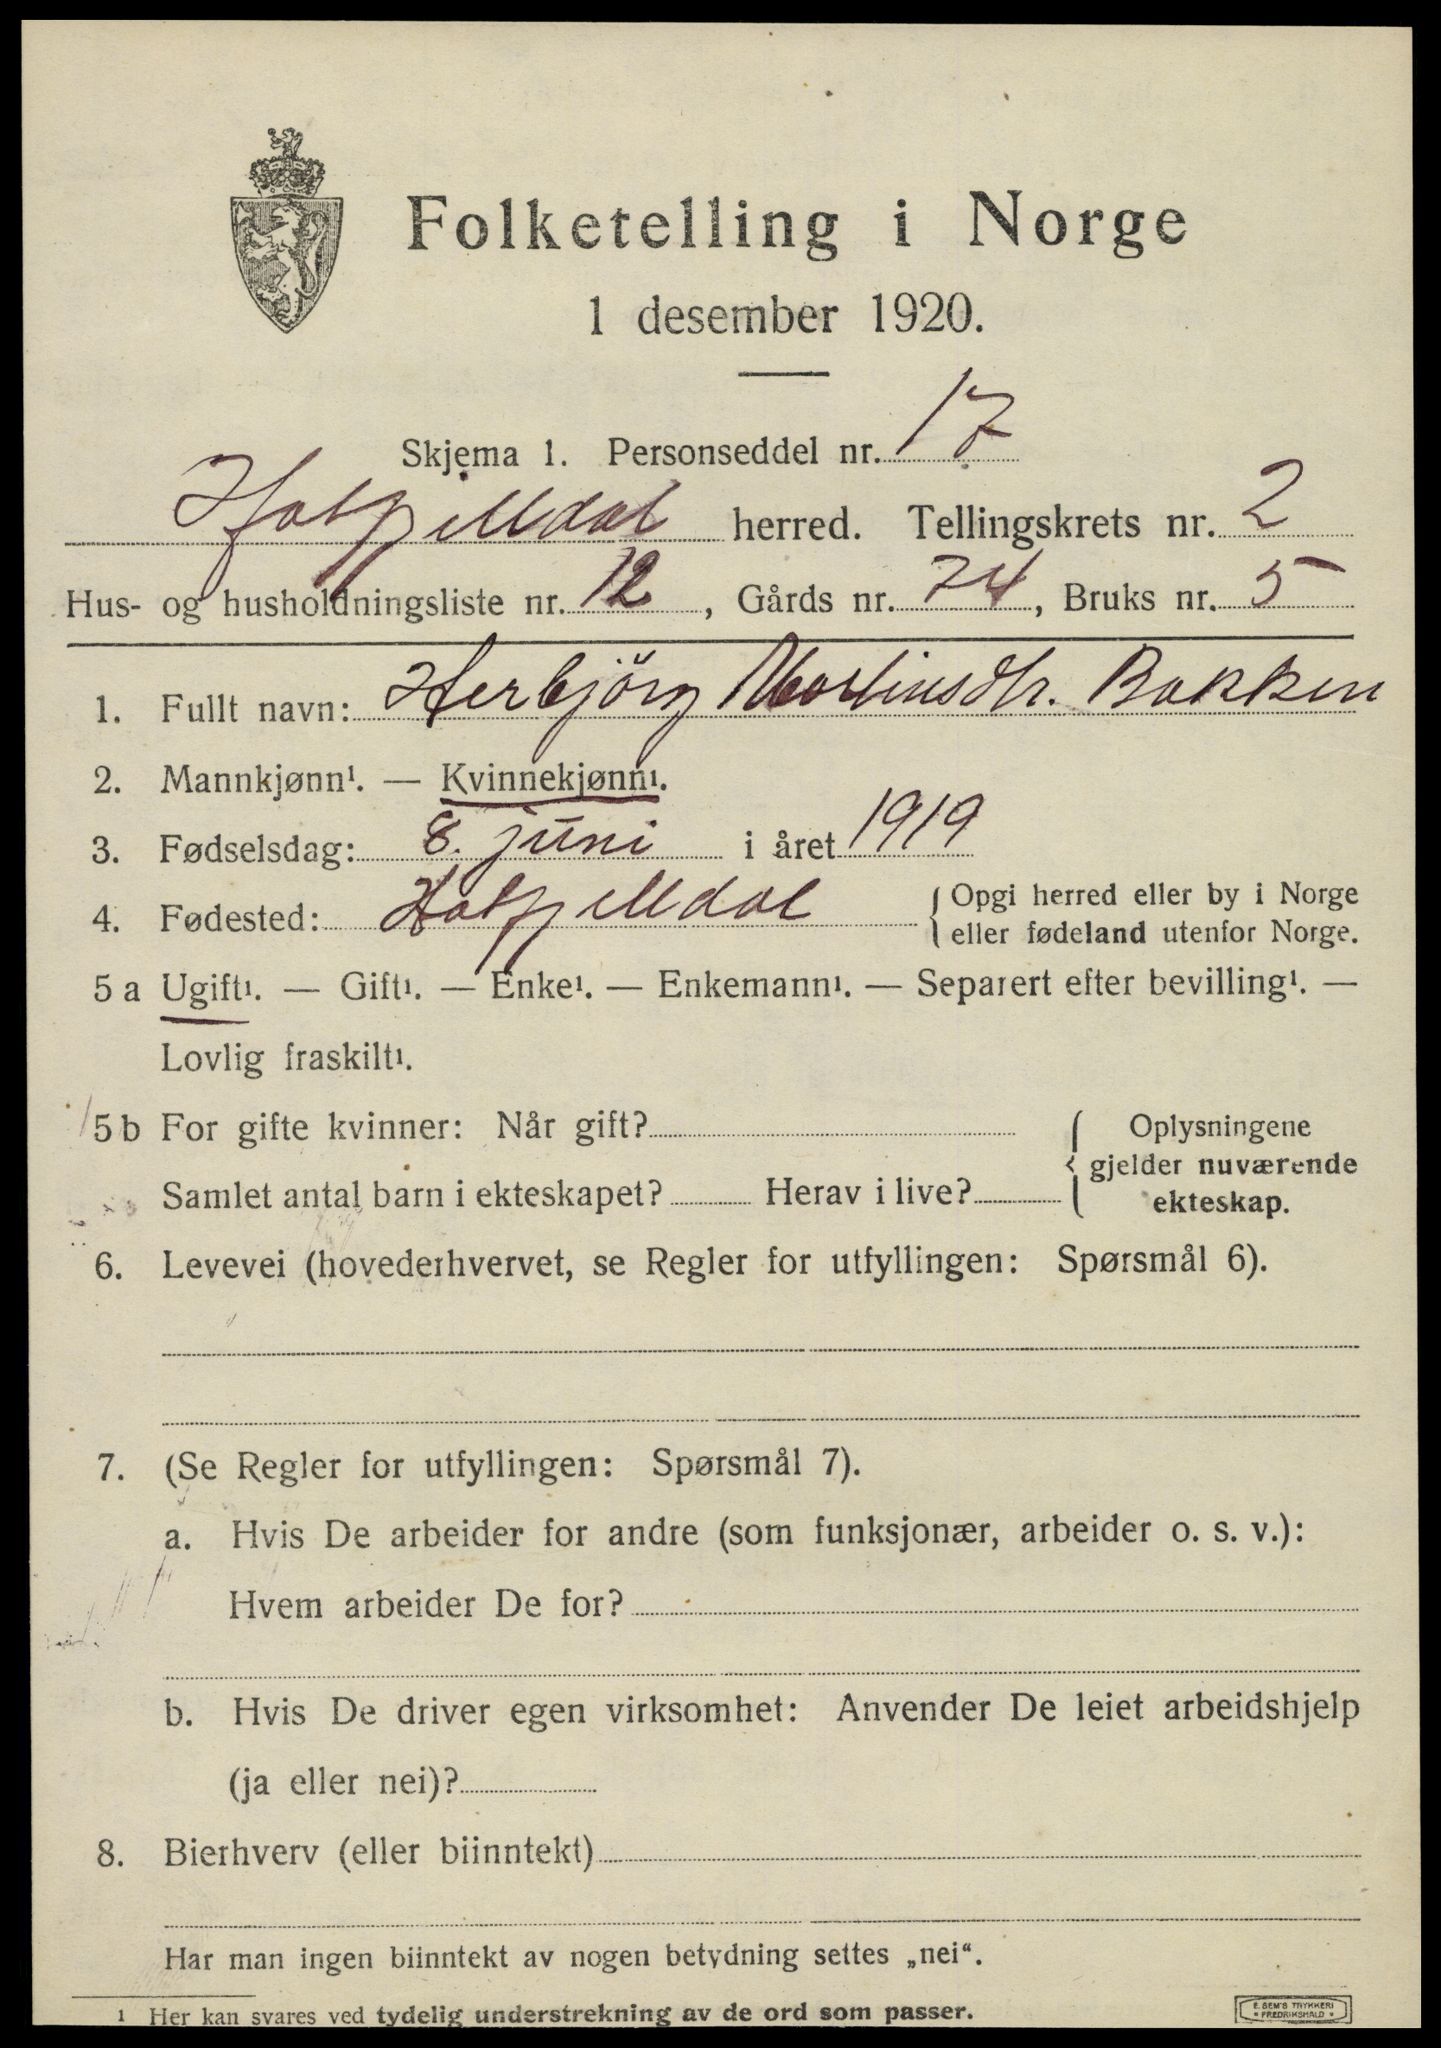 Folketelling i Norge
1 desember 1920.
Skjema 1. Personseddel nr. 17
Hatfjelldal herred. Tellingskrets nr. 2
Hus- og husholdningsliste nr. 12, Gårds nr. 74, Bruks nr. 5
1. Fullt navn: Herbjörg Martinsdtr. Bakken
2. Mannkjønn¹. — Kvinnekjønn¹.
3. Fødselsdag: 8. juni i året 1919
4. Fødested: Hatfjelldal {Opgi herred eller by i Norge
eller fødeland utenfor Norge.
5 a Ugift¹. — Gift¹. — Enke¹. — Enkemann¹. — Separert efter bevilling¹. —
Lovlig fraskilt¹.
5 b For gifte kvinner: Når gift? {Oplysningene
gjelder nuværende
Samlet antal barn i ekteskapet? Herav i live? ekteskap.
6. Levevei (hovederhvervet, se Regler for utfyllingen: Spørsmål 6).
7. (Se Regler for utfyllingen: Spørsmål 7).
a. Hvis De arbeider for andre (som funksjonær, arbeider o. s. v.):
Hvem arbeider De for?
b. Hvis De driver egen virksomhet: Anvender De leiet arbeidshjelp
(ja eller nei)?
8. Bierhverv (eller biinntekt)
Har man ingen biinntekt av nogen betydning settes „nei“.
¹ Her kan svares ved tydelig understrekning av de ord som passer.
E. SEM'S TRYKKERI
FREDRIKSHALD